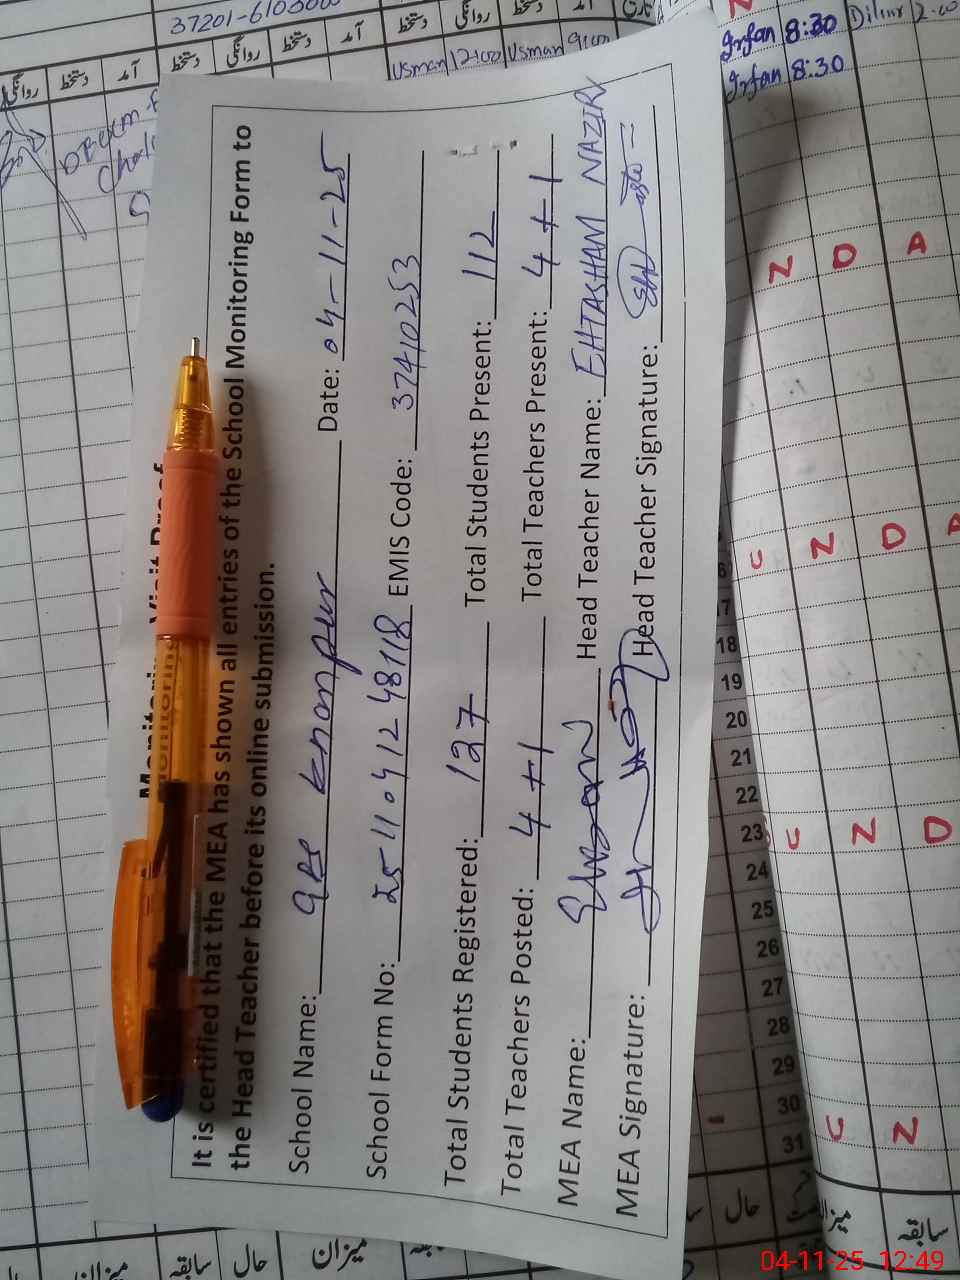 It is certified that the MEA has shown all entries of the School Monitoring Form to
the Head Teacher before its online submission.
School Name: Khanpur Date: 04-11-25
School Form No: 2511041248118 EMIS Code: 37410253
Total Students Registered: 127 Total Students Present: 112
Total Teachers Posted: 4+1 Total Teachers Present: 4+1
MEA Name: Head Teacher Name: EHTASHAM NAZIR
MEA Signature: Head Teacher Signature:
روانگی دستخط آمد دستخط روانگی دستخط آمد دستخط روانگی دستخط آمد
Usman 12:00 Usman 9:00
Irfan 8:30
Irfan 8:30
N D A
U N D A
17
18
19
20
21
22
23 U N D
24
25
26
27
28
29
30
31 U N
حال
سابقہ
میزان
حال
سابقہ
میزان
04-11-25 12:49